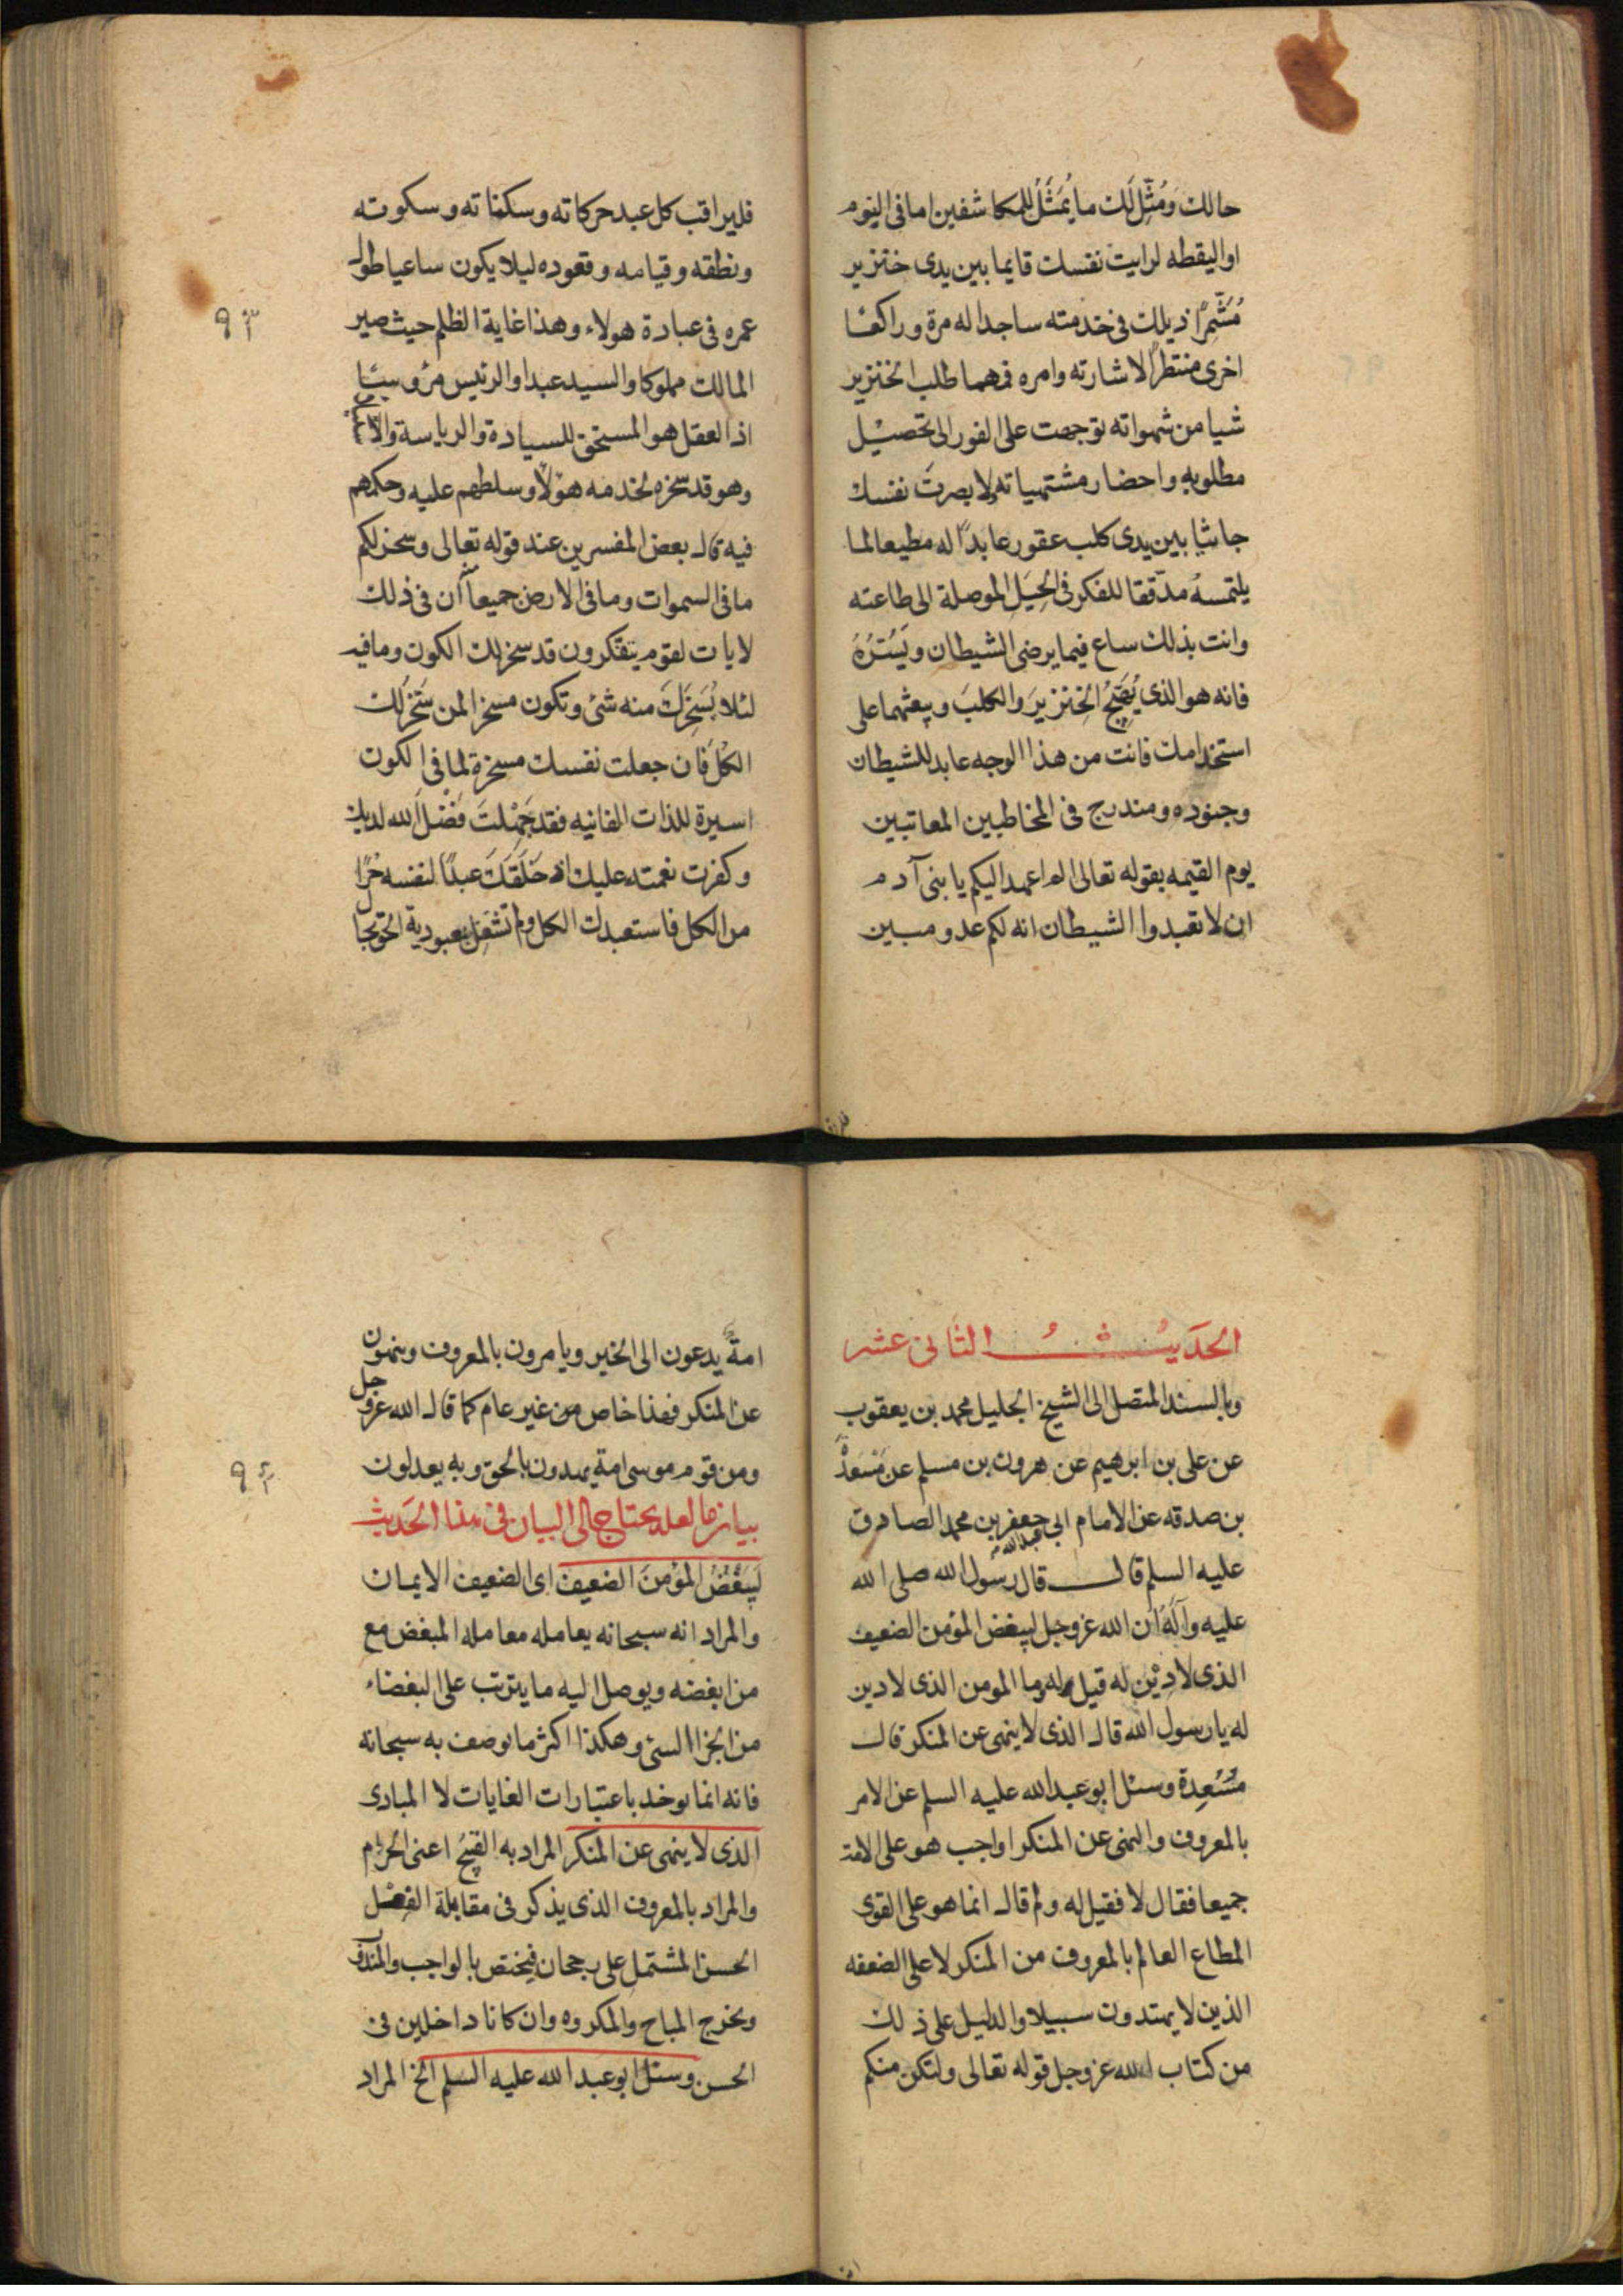 حالك وَمُثِّلَ لَك ما يُمَثَّلُ للمكاشفين اما فى النوم
او اليقظه لرايت نفسك قايما بين يدى خنزير
مُشَمِّرًا ذيلك فى خدمته ساجدا له مرة وراكعا
اخرى منتظرًا لاشارته وامره فمهما طلب الخنزير
شيا من شهواته توجهت على الفور الى تحصيل
مطلوبه واحضار مشتهياته ولا بصرتَ نفسك
جاثيا بين يدى كلب عقور عابدًا له مطيعا لما
يلتمسهُ مدققا للفكر فى الحِيَل الموصلة الى طاعته
وانت بذلك ساع فيما يرضى الشيطان ويَسُرُّهُ
فانه هو الذى يُهَيِّجُ الخِنْزيرَ والكلبَ ويبعثهما على
استخدامك فانت من هذا الوجه عابد للشيطان
وجنوده ومندرج فى المخاطبين المعاتبين
يوم القيمه بقوله تعالى الم اعهد اليكم يا بنى آدم
ان لا تعبدوا الشيطان انه لكم عدو مبين
فليراقب كل عبد حركاته وسكناته وسكوته
ونطقه وقيامه وقعوده ليلا يكون ساعيا طول
عمره فى عبادة هولاء وهذا غاية الظلم حيث صير
المالك مملوكا والسيد عبدا والرئيس مرؤسيا
اذ العقل هو المستحق للسيادة والرياسة
وهو قد سخره لخدمه هؤلاء وسلطهم عليه وحكمهم
فيه قال بعض المفسرين عند قوله تعالى وسخر لكم
ما فى السموات وما فى الارض جميعا ان فى ذلك
لايات لقوم يتفكرون قد سخر لك الكون وما فيه
لئلا يُسَخِّرَكَ منه شئ وتكون مسخرا لمن سَخَّرَ لك
الكُلّ فان جعلت نفسك مسخرة لما فى الكون
اسيرة للذات الفانيه فقد جَهِلْتَ فَضْلَ الله لديك
وكفرت نعمته عليك اذ خَلَقَكَ عبدًا لنفسه حُرًّا
من الكل فاستعبدك الكل ولم تشتغل بعبودية الحق بحال
٩٣
الحَديثُ الثانى عشر
وبالسند المتصل الى الشيخ الجليل محمد بن يعقوب
عن على بن ابرهيم عن هرون بن مسلم عن مَسْعَدَةَ
بن صدقه عن الامام ابى عبدالله جعفر بن محمد الصادق
عليه السلم قال قال رسول الله صلى الله
عليه وآلِهِ ان الله عز وجل ليبغض المؤمن الضعيف
الذى لا دِيْن له قيل له وما المومن الذى لا دين
له يا رسول الله قال الذى لا ينهى عن المنكر قال
مَسْعَدة وسئل ابو عبد الله عليه السلم عن الامر
بالمعروف والنهى عن المنكر اواجب هو على الامة
جميعا فقال لا فقيل له ولم قال انما هو على القوى
المطاع العالم بالمعروف من المنكر لا على الضعفه
الذين لا يهتدون سبيلا والدليل على ذلك
من كتاب الله عز وجل قوله تعالى ولتكن منكم
امةٌ يدعون الى الخير ويامرون بالمعروف وينهون
عن المنكر فهذا خاص من غير عام كما قال الله عز وجل
ومن قوم موسى امة يهدون بالحق وبه يعدلون
بيان ما لعله يحتاج الى البيان فى هذا الحَديث
لَيبْغضُ المؤمنَ الضعيف اى الضعيف الايمان
والمراد انه سبحانه يعامله معامله المبغض مع
من ابغضه ويوصل اليه ما يترتب على البغضاء
من الجزا السئ وهكذا اكثر ما يوصف به سبحانه
فانه انما يوخد باعتبارات الغايات لا المبادى
الذى لا ينهى عن المنكر المراد به القبيح اعنى الحرام
والمراد بالمعروف الذى يذكر فى مقابلة الفعل
الحسن المشتمل على رجحان فيختص بالواجب والمندوب
ويخرج المباح والمكروه وان كانا داخلين فى
الحسن وسئل ابو عبد الله عليه السلم الخ المراد
٩٤